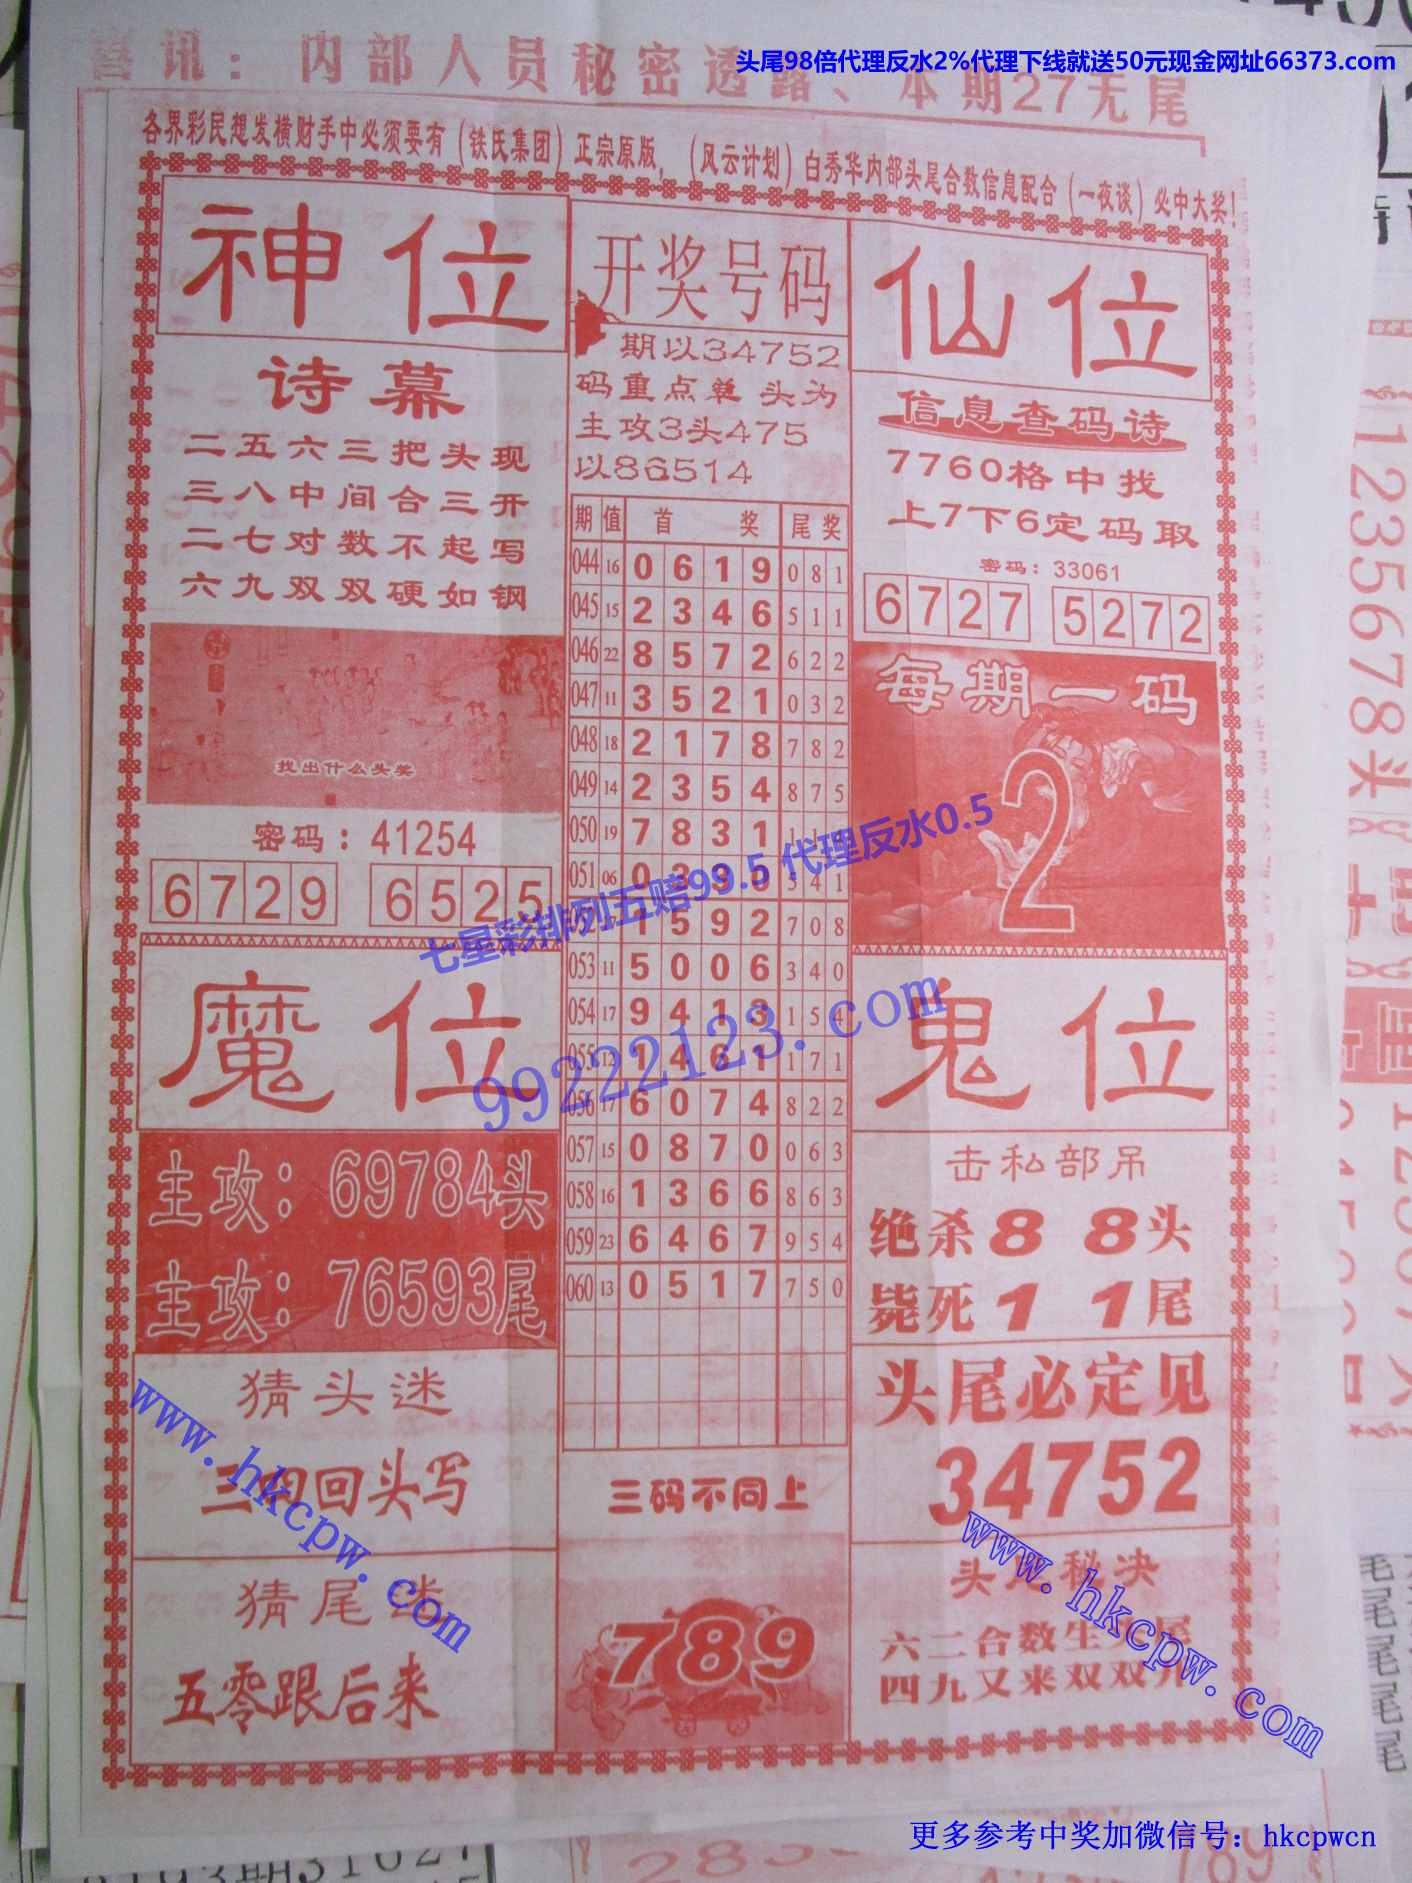 头尾98倍代理反水2%代理下线就送50元现金网址66373.com
喜讯：内部人员秘密透露、本期27无尾
各界彩民想发横财手中必须要有（铁氏集团）正宗原版，（风云计划）白秀华内部头尾合数信息配合（一夜谈）必中大奖！
神位
诗幕
二五六三把头现
三八中间合三开
二七对数不起写
六九双双硬如钢
找出什么头奖
密码：41254
6729 6525
魔位
主攻：69784头
主攻：76593尾
猜头迷
三 回头写
猜尾
五零跟后来
开奖号码
期以34752
码重点单 头为
主攻3头475
以86514
期 值 首 奖 尾奖
044 16 0 6 1 9 0 8 1
045 15 2 3 4 6 5 1 1
046 22 8 5 7 2 6 2 2
047 11 3 5 2 1 0 3 2
048 18 2 1 7 8 7 8 2
049 14 2 3 5 4 8 7 5
050 19 7 8 3 1
051 06 0 3 5 4 1
1 5 9 2 7 0 8
053 11 5 0 0 6 3 4 0
054 17 9 4 1 3 1 5 4
055 12 1 4 6 1 1 7 1
056 17 6 0 7 4 8 2 2
057 15 0 8 7 0 0 6 3
058 16 1 3 6 6 8 6 3
059 23 6 4 6 7 9 5 4
060 13 0 5 1 7 7 5 0
三码不同上
789
仙位
信息查码诗
7760格中找
上7下6定码取
密码：33061
6727 5272
每期一码
2
鬼位
击私部吊
绝杀8 8头
毙死1 1尾
头尾必定见
34752
头尾秘决
六二合数生
四九又来双双开
七星彩排列五赔99.5 代理反水0.5
99222123.com
www.hkcpw.com
www.hkcpw.com
1235678头
更多参考中奖加微信号：hkcpwcn